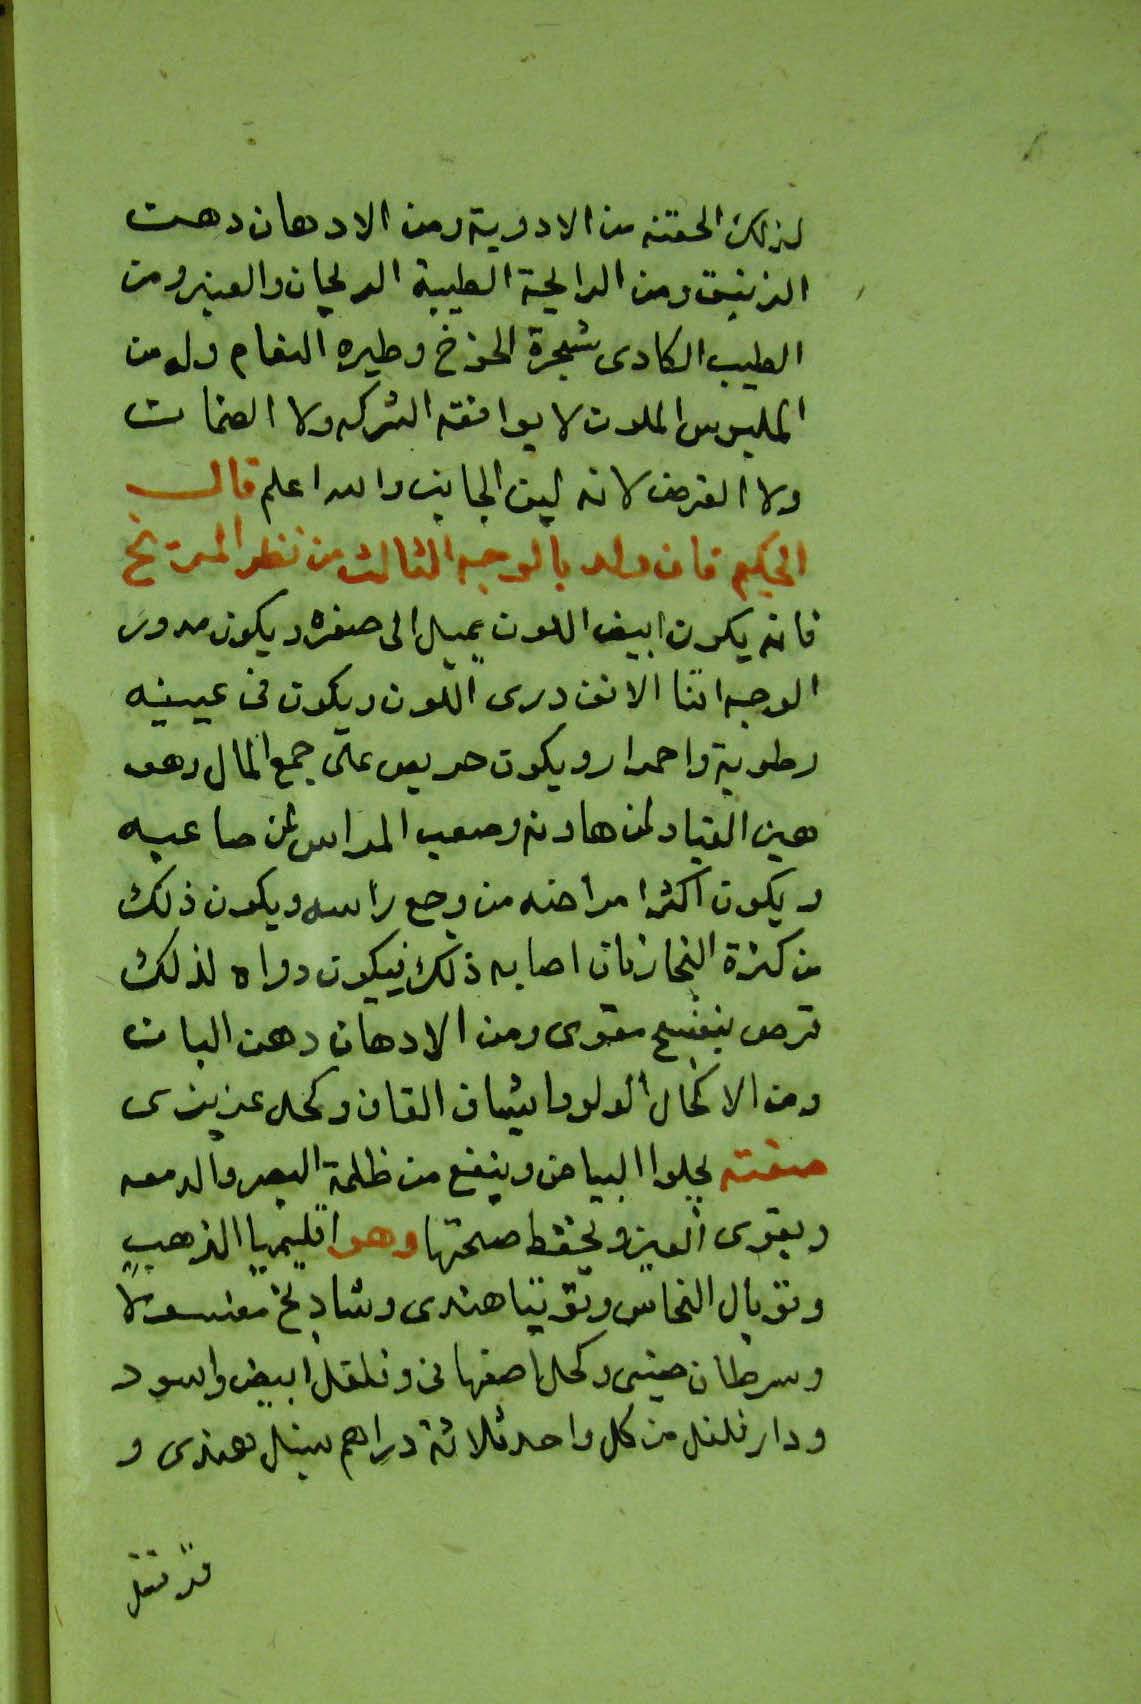 لذلك الحقنه من الادوية ومن الادهان دهن
الزنبق ومن الرايحة الطيبة الريحان والعنبر ومن
الطيب الكادى شجرة الخوخ وطيره النعام وله من
الملبوس الملون لا يوافقه الشركه ولا الضمانات
ولا القرض لانه لين الجانب والله اعلم قال
الحكيم فان ولد بالوجه الثالث من نظر المريخ
فانه يكون ابيض اللون يميل الى صفره ويكون مدور
الوجه اقنا الانف درى اللون ويكون فى عينيه
رطوبة واحمرار ويكون حريص على جمع المال وهو
هين القياد لمن هاونه وصعب المراس لمن صاعبه
ويكون اكثر امراضه من وجع راسه ويكون ذلك
من كثرة البخار فان اصابه ذلك فيكون دواه لذلك
قرص بنفسج مقوى ومن الادهان دهن البان
ومن الاكحال الولو وكحل عزيزى
صفته يجلوا البياض وينفع من ظلمة البصر والدمعه
ويقوى العين ويحفظ صحتها وهو اقليميا الذهب
وتوبال النحاس وتوتيا هندى وشادنج مغسولا
وسرطان صينى وكحل اصفهانى وفلفل ابيض واسود
ودار فلفل من كل واحد ثلاثة دراهم سنبل هندى و
قرنفل